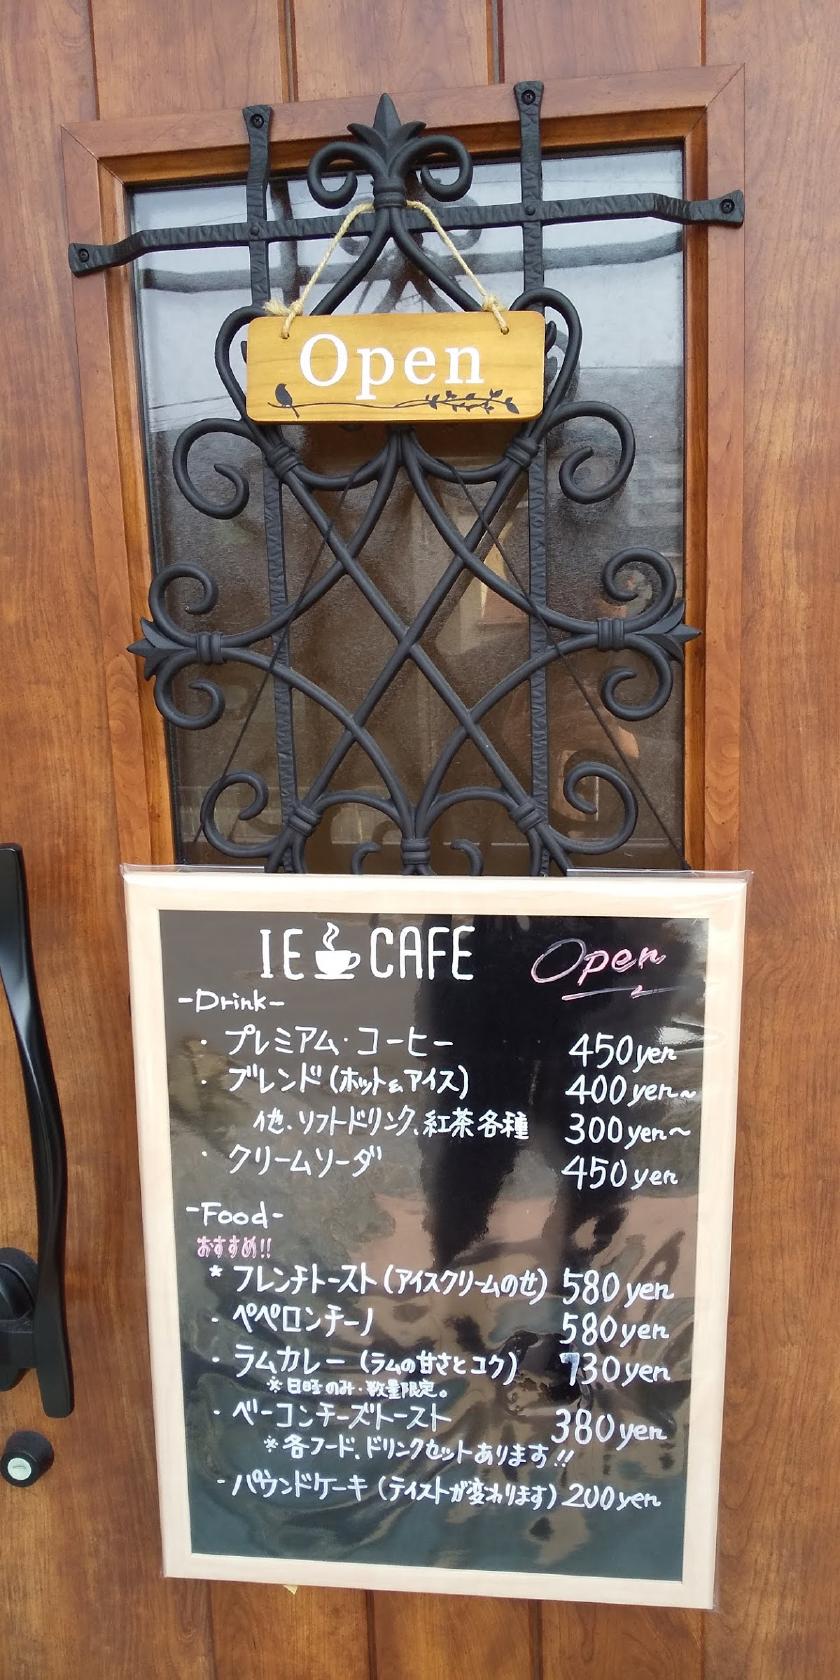 Open
IE CAFE Open
-Drink-
・プレミアム・コーヒー 450yen
・ブレンド(ホット&アイス) 400yen~
他・ソフトドリンク、紅茶各種 300yen~
・クリームソーダ 450yen
-Food-
おすすめ!!
* フレンチトースト(アイスクリームのせ) 580yen
・ペペロンチーノ 580yen
・ラムカレー(ラムの甘さとコク) 730yen
※日曜のみ・数量限定。
・ベーコンチーズトースト 380yen
※各フード、ドリンクセットあります!!
・パウンドケーキ(テイストが変わります) 200yen